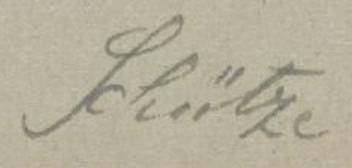 Schütze